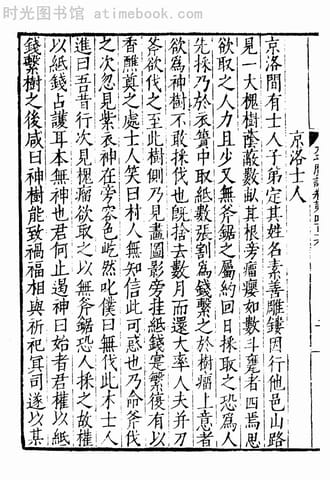 时光图书馆 - atimebook.com
京洛士人
京洛間有士人子弟定其姓名素善雕鏤因行他邑山路
見一大槐樹蔭蔽數畝其根旁瘤癭如數斗甕者四焉思
欲取之人力且少又無斧鋸之屬約回日採取之恐為人
先採乃於衣篋中取紙數張割為錢繫之於樹瘤上意者
欲為神樹不敢採伐也旣捨去數月而還大率人夫并刀
斧欲伐之至此樹側乃見畫圖影旁挂紙錢寔繁復有以
香醮奠之處士人笑曰村人無知信此可惑也乃命斧伐
之次忽見紫衣神在旁容色屹然叱僕曰無伐此木士人
進曰吾昔行次見槐瘤欲取之以無斧鋸恐人採之故權
以紙錢占護耳本無神也君何止遏神曰始者君權以紙
錢繫樹之後咸曰神樹能致禍福相與祈祀冥司遂以某